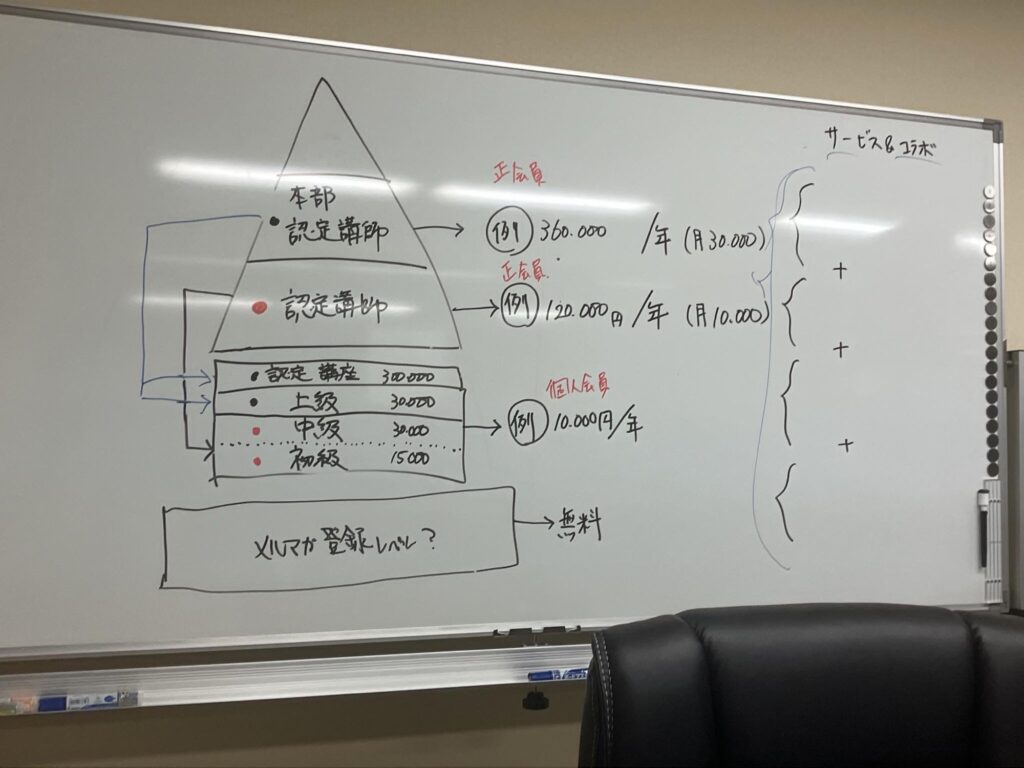 サービス&コラボ
正会員
本部
・認定講師 → 例 360.000 /年 (月30.000)
正会員
・認定講師 → 例 120.000円/年 (月10.000)
+
+
・認定講座 300000
個人会員
・上級 30.000
・中級 30.000 → 例 10.000円/年
+
・初級 15000
メルマガ登録レベル? → 無料